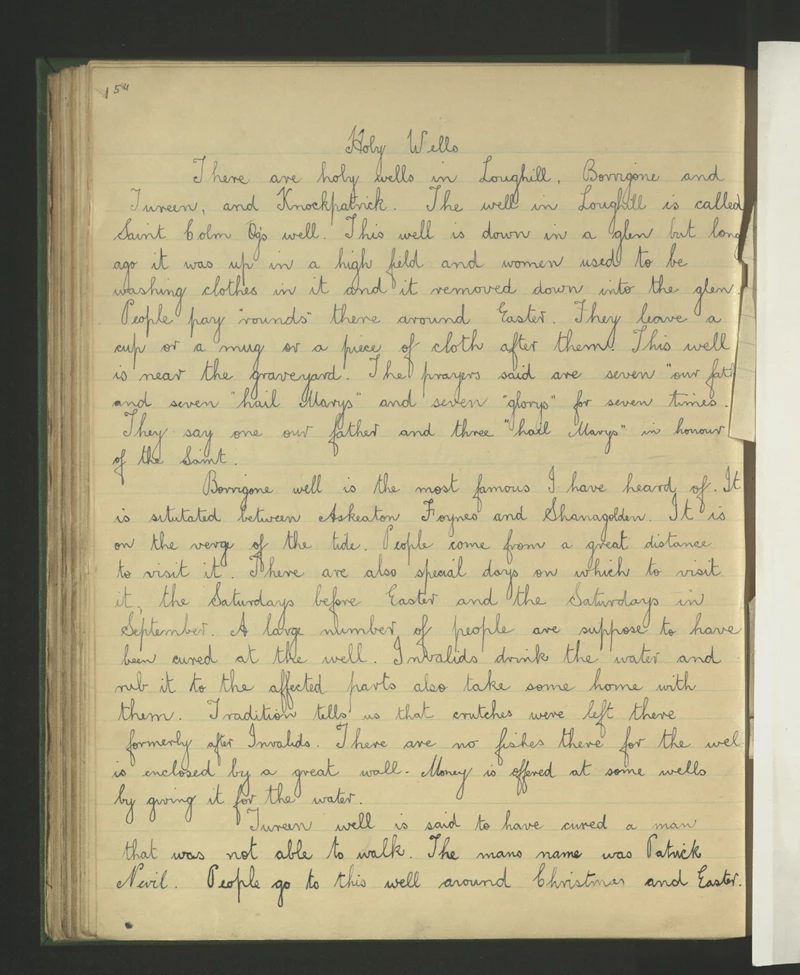 154
Holy Wells
There are holy wells in Loughill, Borrigone and
Tureen, and Knockpatrick. The well in Loughill is called
Saint Colm Ogs well. This well is down in a glen but long
ago it was up in a high field and women used to be
washing clothes in it and it removed down into the glen
People pay "rounds" there around Easter. They leave a
cup or a mug or a piece of cloth after them. This well
is near the graveyard. The prayers said are seven "our fath
and seven "hail Marys" and seven "glorys" for seven times.
They say one our father and three "hail Marys" in honour
of the Saint.
Borrigone well is the most famous I have heard of. It
is situtated between Askeaton Foynes and Shanagolden. It is
on the verge of the tide. People come from a great distance
to visit it. There are also special days on which to visit
it, the Saturdays before Easter and the Saturdays in
September. A large number of people are suppose to have
been cured at the well. Invalids drink the water and
rub it to the affected parts also take some home with
them. Tradition tells us that crutches were left there
formerly after Invalids. There are no fishes there for the wel
is enclosed by a great wall. Money is offered at some wells
by giving it for the water.
Tureen well is said to have cured a man
that was not able to walk. The mans name was Patrick
Nevil. People go to this well around Christmas and Easter.